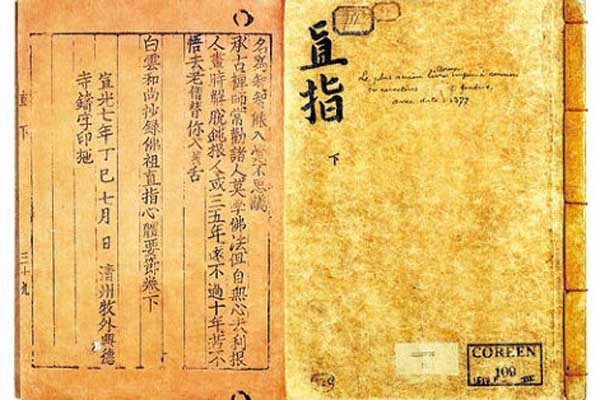 名爲 能入 不思議
承古禪師常勸諸人莫學佛法但自無心去利根
人晝時解脫鈍根人或三五年遠不過十年若不
悟去老僧替你入 舌
白雲和尚抄錄佛祖直指心體要節卷下
宣光七年丁巳七月 日 淸州牧外興德
寺鑄字印施
直 下 三十九
直指
下
Le plus ancien livre coréen imprimé connu
en caractères fondus,
avec date: 1377
COREEN
109